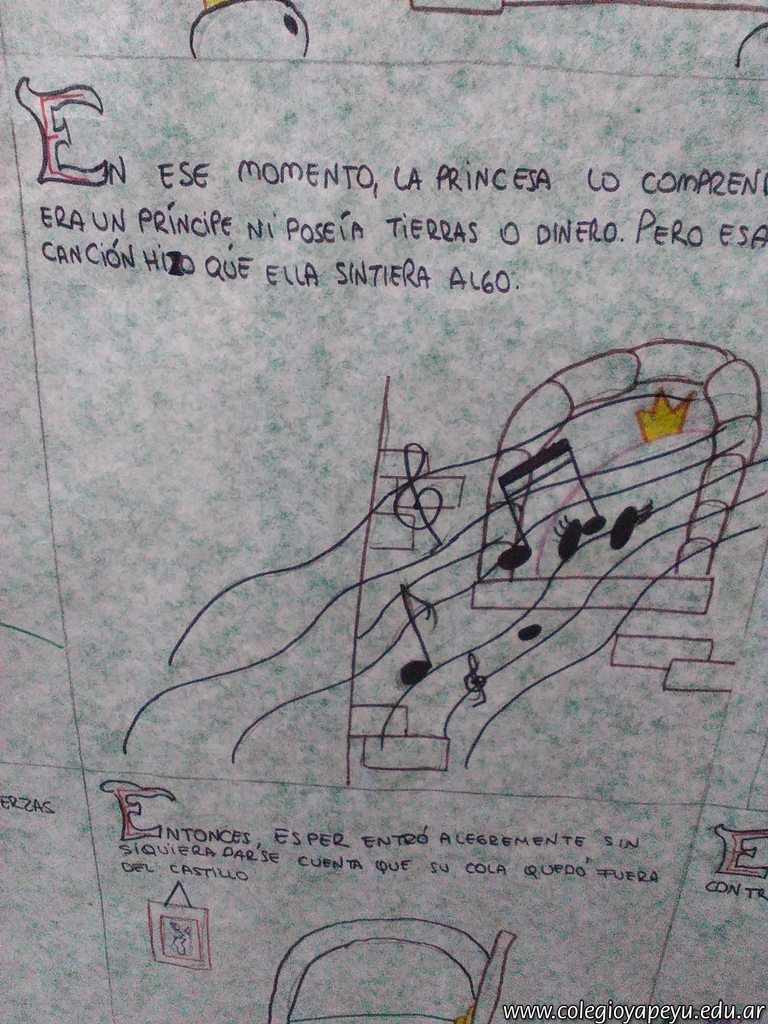 EN ESE MOMENTO, LA PRINCESA LO
ERA UN PRÍNCIPE NI POSEÍA TIERRAS O DINERO. PERO ESA
CANCIÓN HIZO QUÉ ELLA SINTIERA ALGO.
ERZAS
ENTONCES, ESPER ENTRÓ ALEGREMENTE SIN
SIQUIERA DARSE CUENTA QUE SU COLA QUEDÓ FUERA
DEL CASTILLO
E
CONTR
www.colegioyapeyu.edu.ar